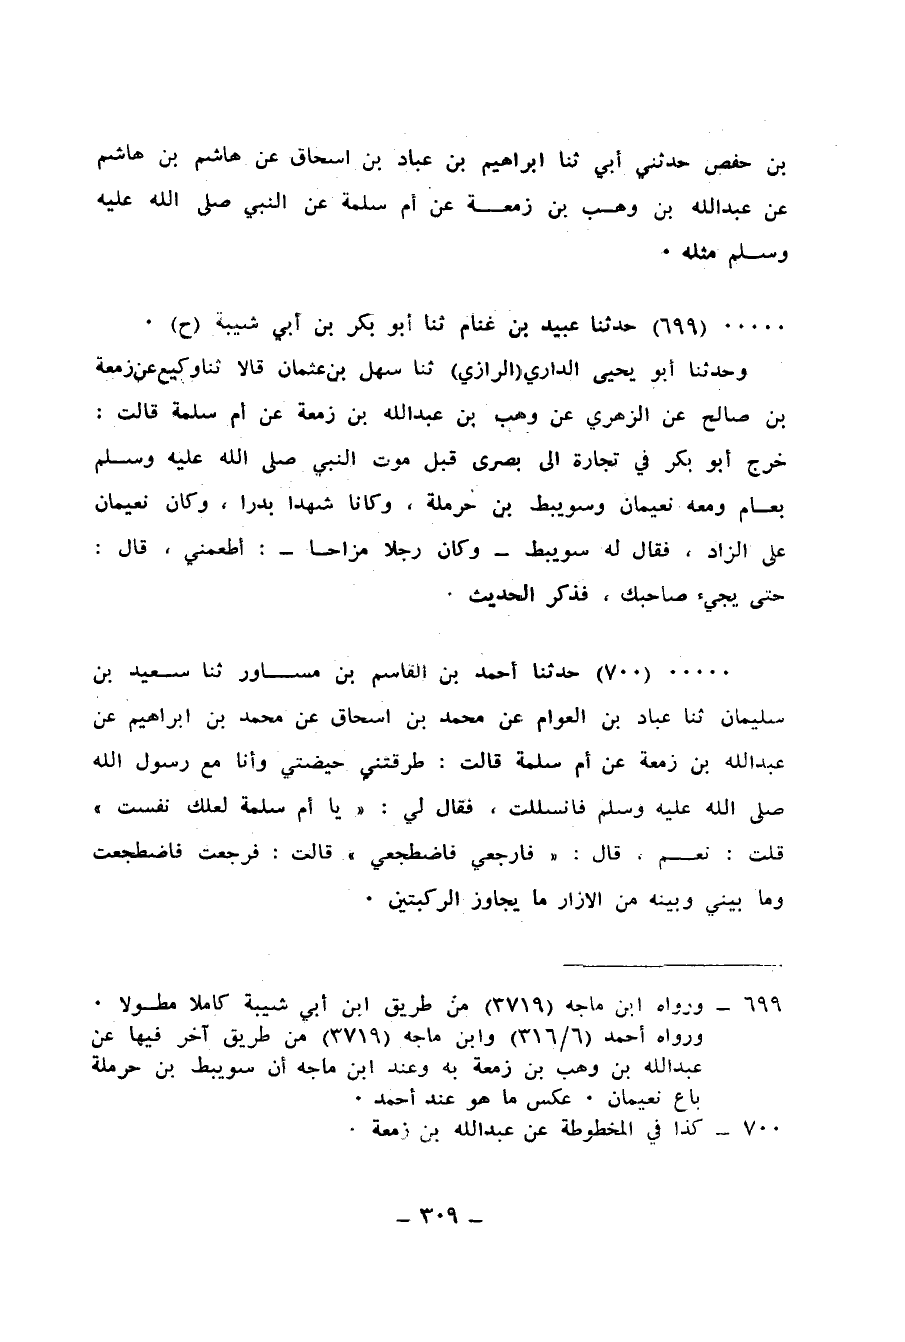 بن حفص حدثني أبي ثنا ابراهيم بن عباد بن اسحاق عن هاشم بن هاشم
عن عبدالله بن وهب بن زمعة عن أم سلمة عن النبي صلى الله عليه
وسلم مثله ٠
٠٠٠٠٠ (٦٩٩) حدثنا عبيد بن غنام ثنا أبو بكر بن أبي شيبة (ح) ٠
وحدثنا أبو يحيى الداري(الرازي) ثنا سهل بن عثمان قالا ثنا وكيع عن زمعة
بن صالح عن الزهري عن وهب بن عبدالله بن زمعة عن أم سلمة قالت :
خرج أبو بكر في تجارة الى بصرى قبل موت النبي صلى الله عليه وسلم
بعام ومعه نعيمان وسويبط بن حرملة ، وكانا شهدا بدرا ، وكان نعيمان
على الزاد ، فقال له سويبط – وكان رجلا مزاحا – : أطعمني ، قال :
حتى يجيء صاحبك ، فذكر الحديث ٠
٠٠٠٠٠ (٧٠٠) حدثنا أحمد بن القاسم بن مساور ثنا سعيد بن
سليمان ثنا عباد بن العوام عن محمد بن اسحاق عن محمد بن ابراهيم عن
عبدالله بن زمعة عن أم سلمة قالت : طرقتني حيضتي وأنا مع رسول الله
صلى الله عليه وسلم فانسللت ، فقال لي : « يا أم سلمة لعلك نفست »
قلت : نعم ، قال : « فارجعي فاضطجعي » قالت : فرجعت فاضطجعت
وما بيني وبينه من الازار ما يجاوز الركبتين ٠
٦٩٩ – ورواه ابن ماجه (٣٧١٩) من طريق ابن أبي شيبة كاملا مطولا ٠
ورواه أحمد (٣١٦/٦) وابن ماجه (٣٧١٩) من طريق آخر فيها عن
عبدالله بن وهب بن زمعة به وعند ابن ماجه أن سويبط بن حرملة
باع نعيمان ٠ عكس ما هو عند أحمد ٠
٧٠٠ – كذا في المخطوطة عن عبدالله بن زمعة ٠
– ٣٠٩ –